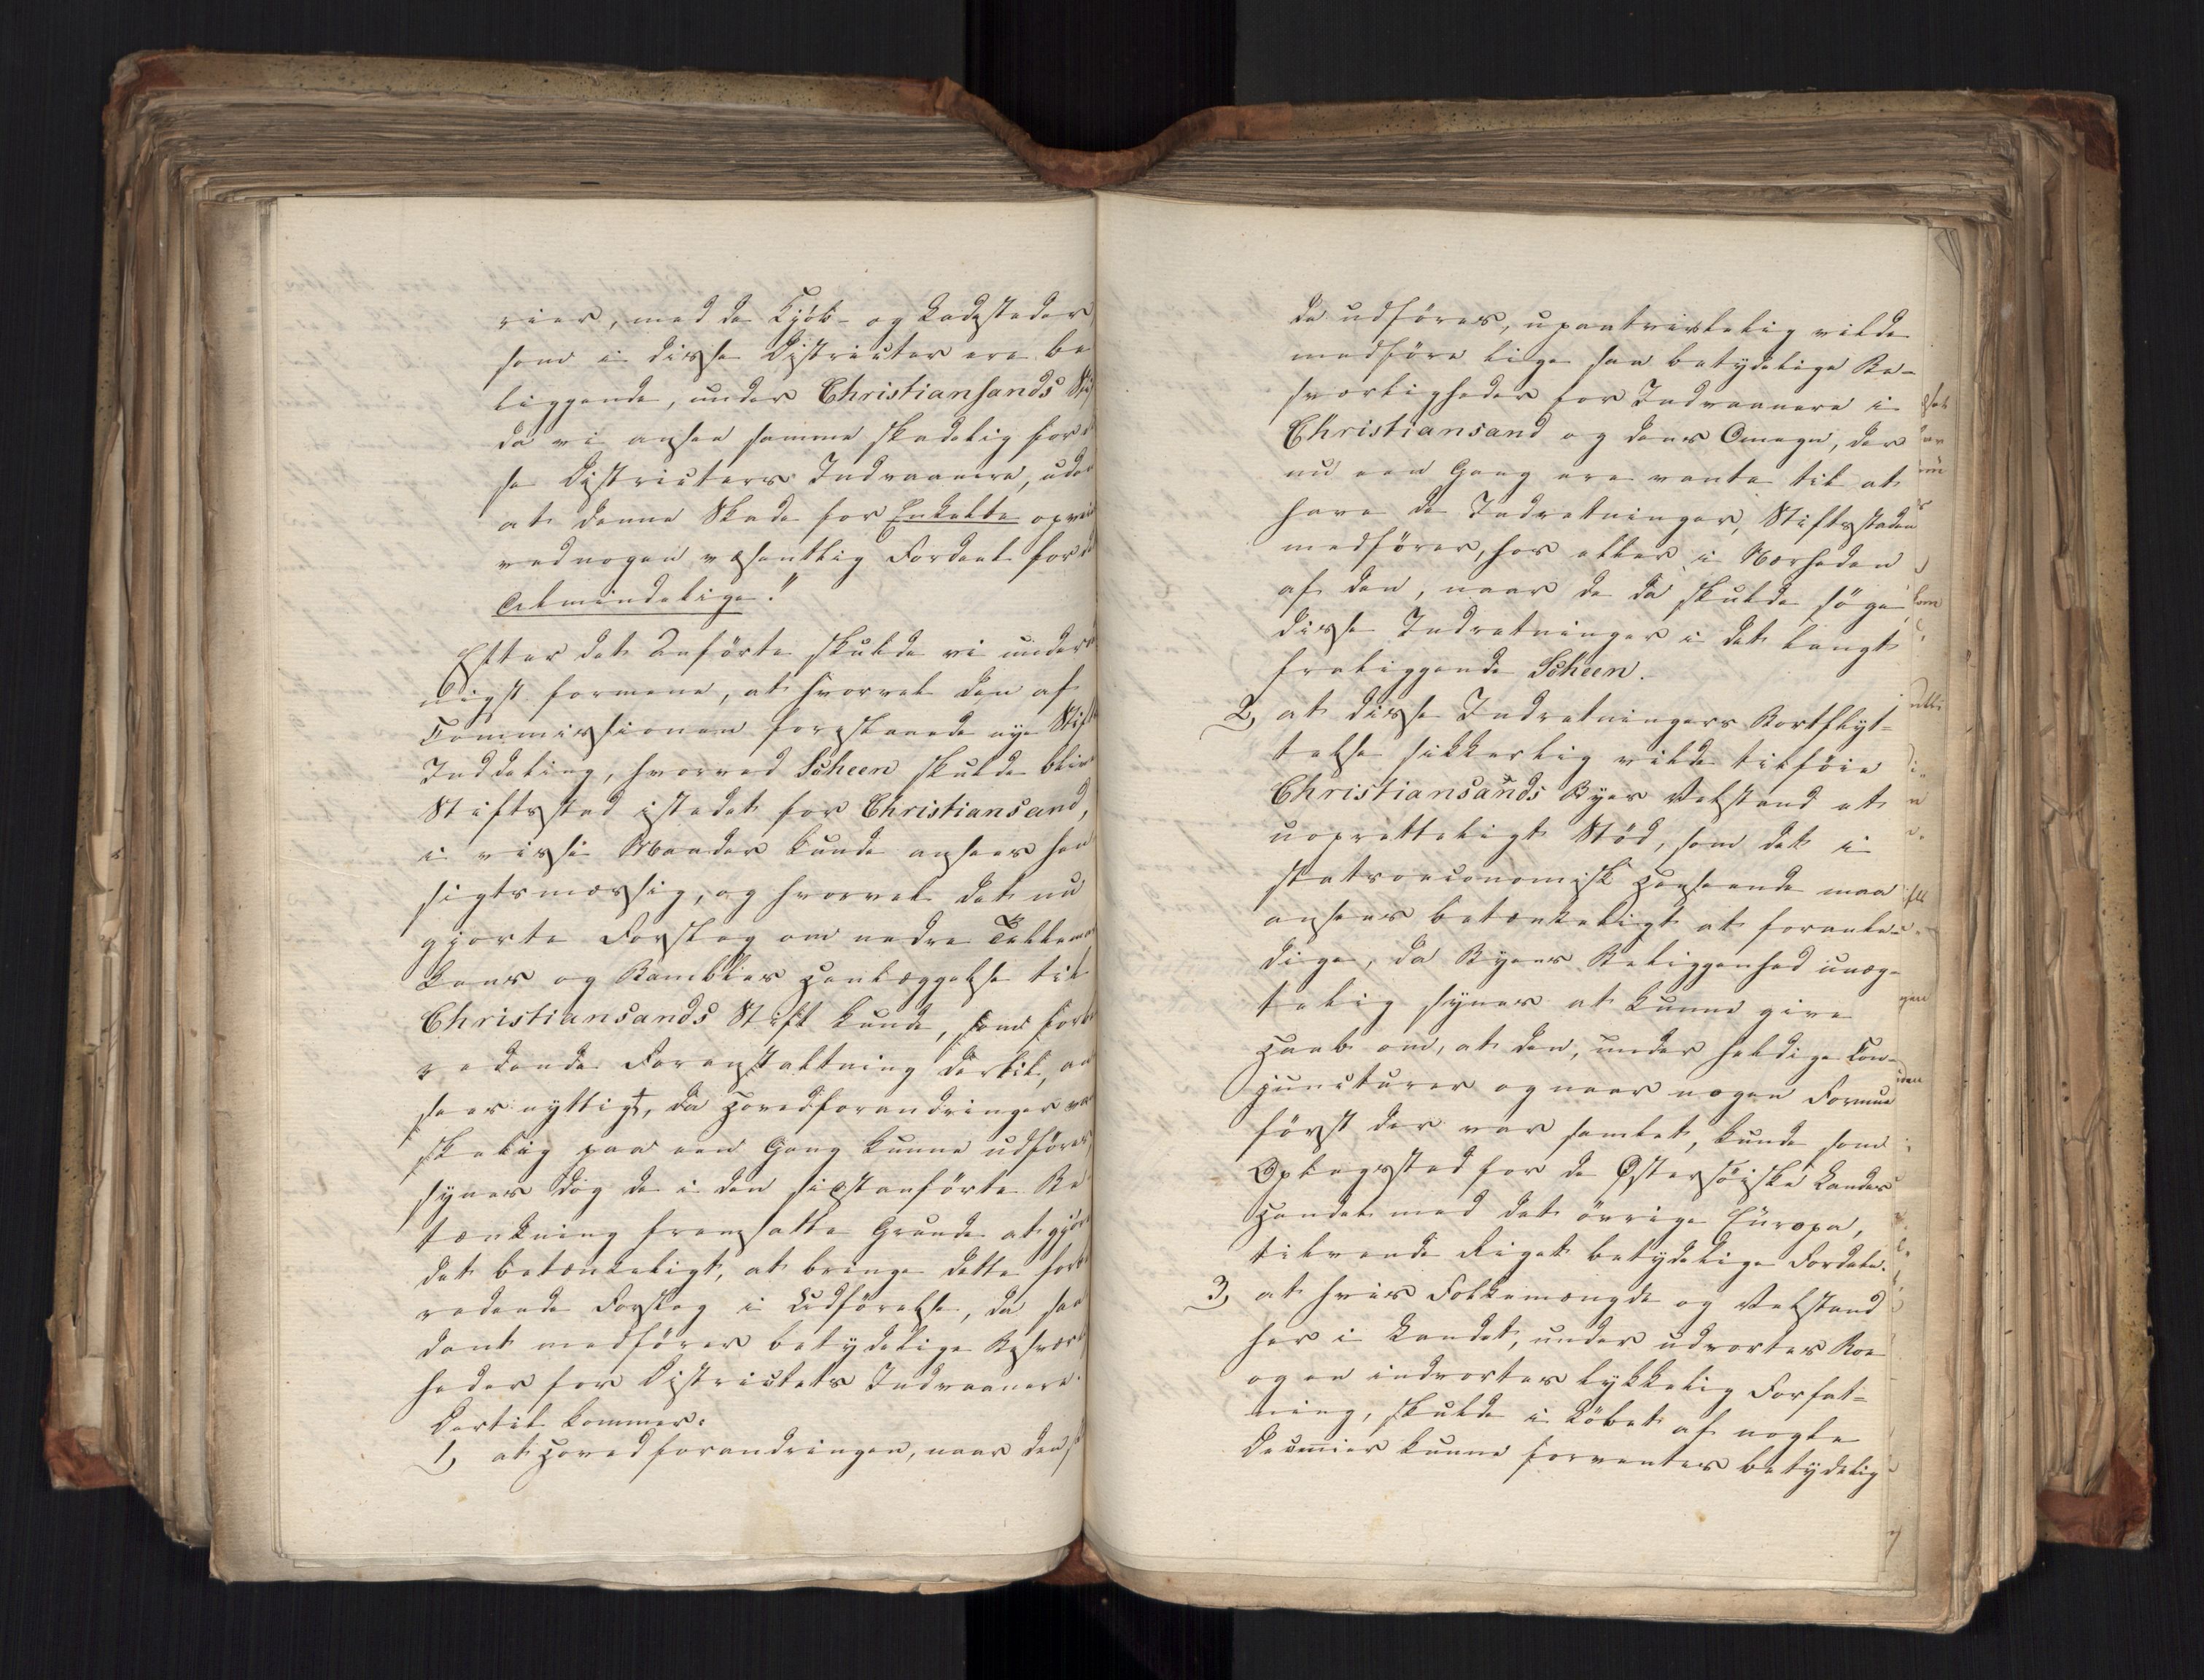 rier, med de Kjöb- og Ladestæder,
som i disse Districter ere be
liggende, under Christiansands Stift
da vi ansee samme skadelig for
se Districters Indvaanere, uden
at denne Skade for Enkelte opveies
ved nogen væsentlig Fordeel for det
Almindelige."
Efter det Anförte skulde vi under
digst formene, at hvorvel den af
Commissionen foreslaaede nye Stifts
Inddeling, hvorved Scheen skulde blive
Stiftsstad istedet for Christiansand,
i visse Maader kunde ansees hen
sigtsmæssig, og hvorvel det nu
gjorte Forslag om nedre Tellemar
kens og Bamblens Henlæggelse til
Christiansands Stift kunde, som forbe
redende Foranstaltning dertil, an
sees nyttigt, da Hovedforandringer van
skelig paa een Gang kunne udföres,
synes dog de i den sidstanförte Be
tænkning fremsatte Grunde at gjöre
det betænkeligt, at bringe dette forbe
redende Forslag i Udförelse, da saa
dant medförer betydelige Besværlig
heder for Districtets Indvaanere.
Dertil kommer:
1, at Hovedforandringen, naar den
da udföres, upaatvivlelig vilde
medföre lige saa betydelige Be-
sværligheder for Indvaanere i
Christiansand og dens Omegn, der
nu een Gang ere vante til at
have de Indretninger, Stiftsstaden
medförer, hos eller i Nærheden
af dem, naar de da skulde söge
disse Indretninger i det langt
fraliggende Scheen.
2, at disse Indretningers Bortflyt=
telse sikkerlig vilde tilföie
Christiansands Byes Velstand et
uopretteligt Stöd, som det i
statsoeconomisk Henseende maa
ansees betænkeligt at foranle-
dige, da Byens Beliggenhed unæg-
telig synes at kunne give
Haab om, at den, under heldige Con-
juncturer og naar nogen Formue
först der var samlet, kunde som
Oplagssted for de Östersöiske Landes
Handel med det övrige Europa,
tilvende Riget betydelige Fordele.
3, at hvis Folkemængde og Velstand
her i Landet, under udvortes Roe
og en indvortes lykkelig Forfat=
ning, skulde i Löbet af nogle
Decennier kunne forventes betydelig